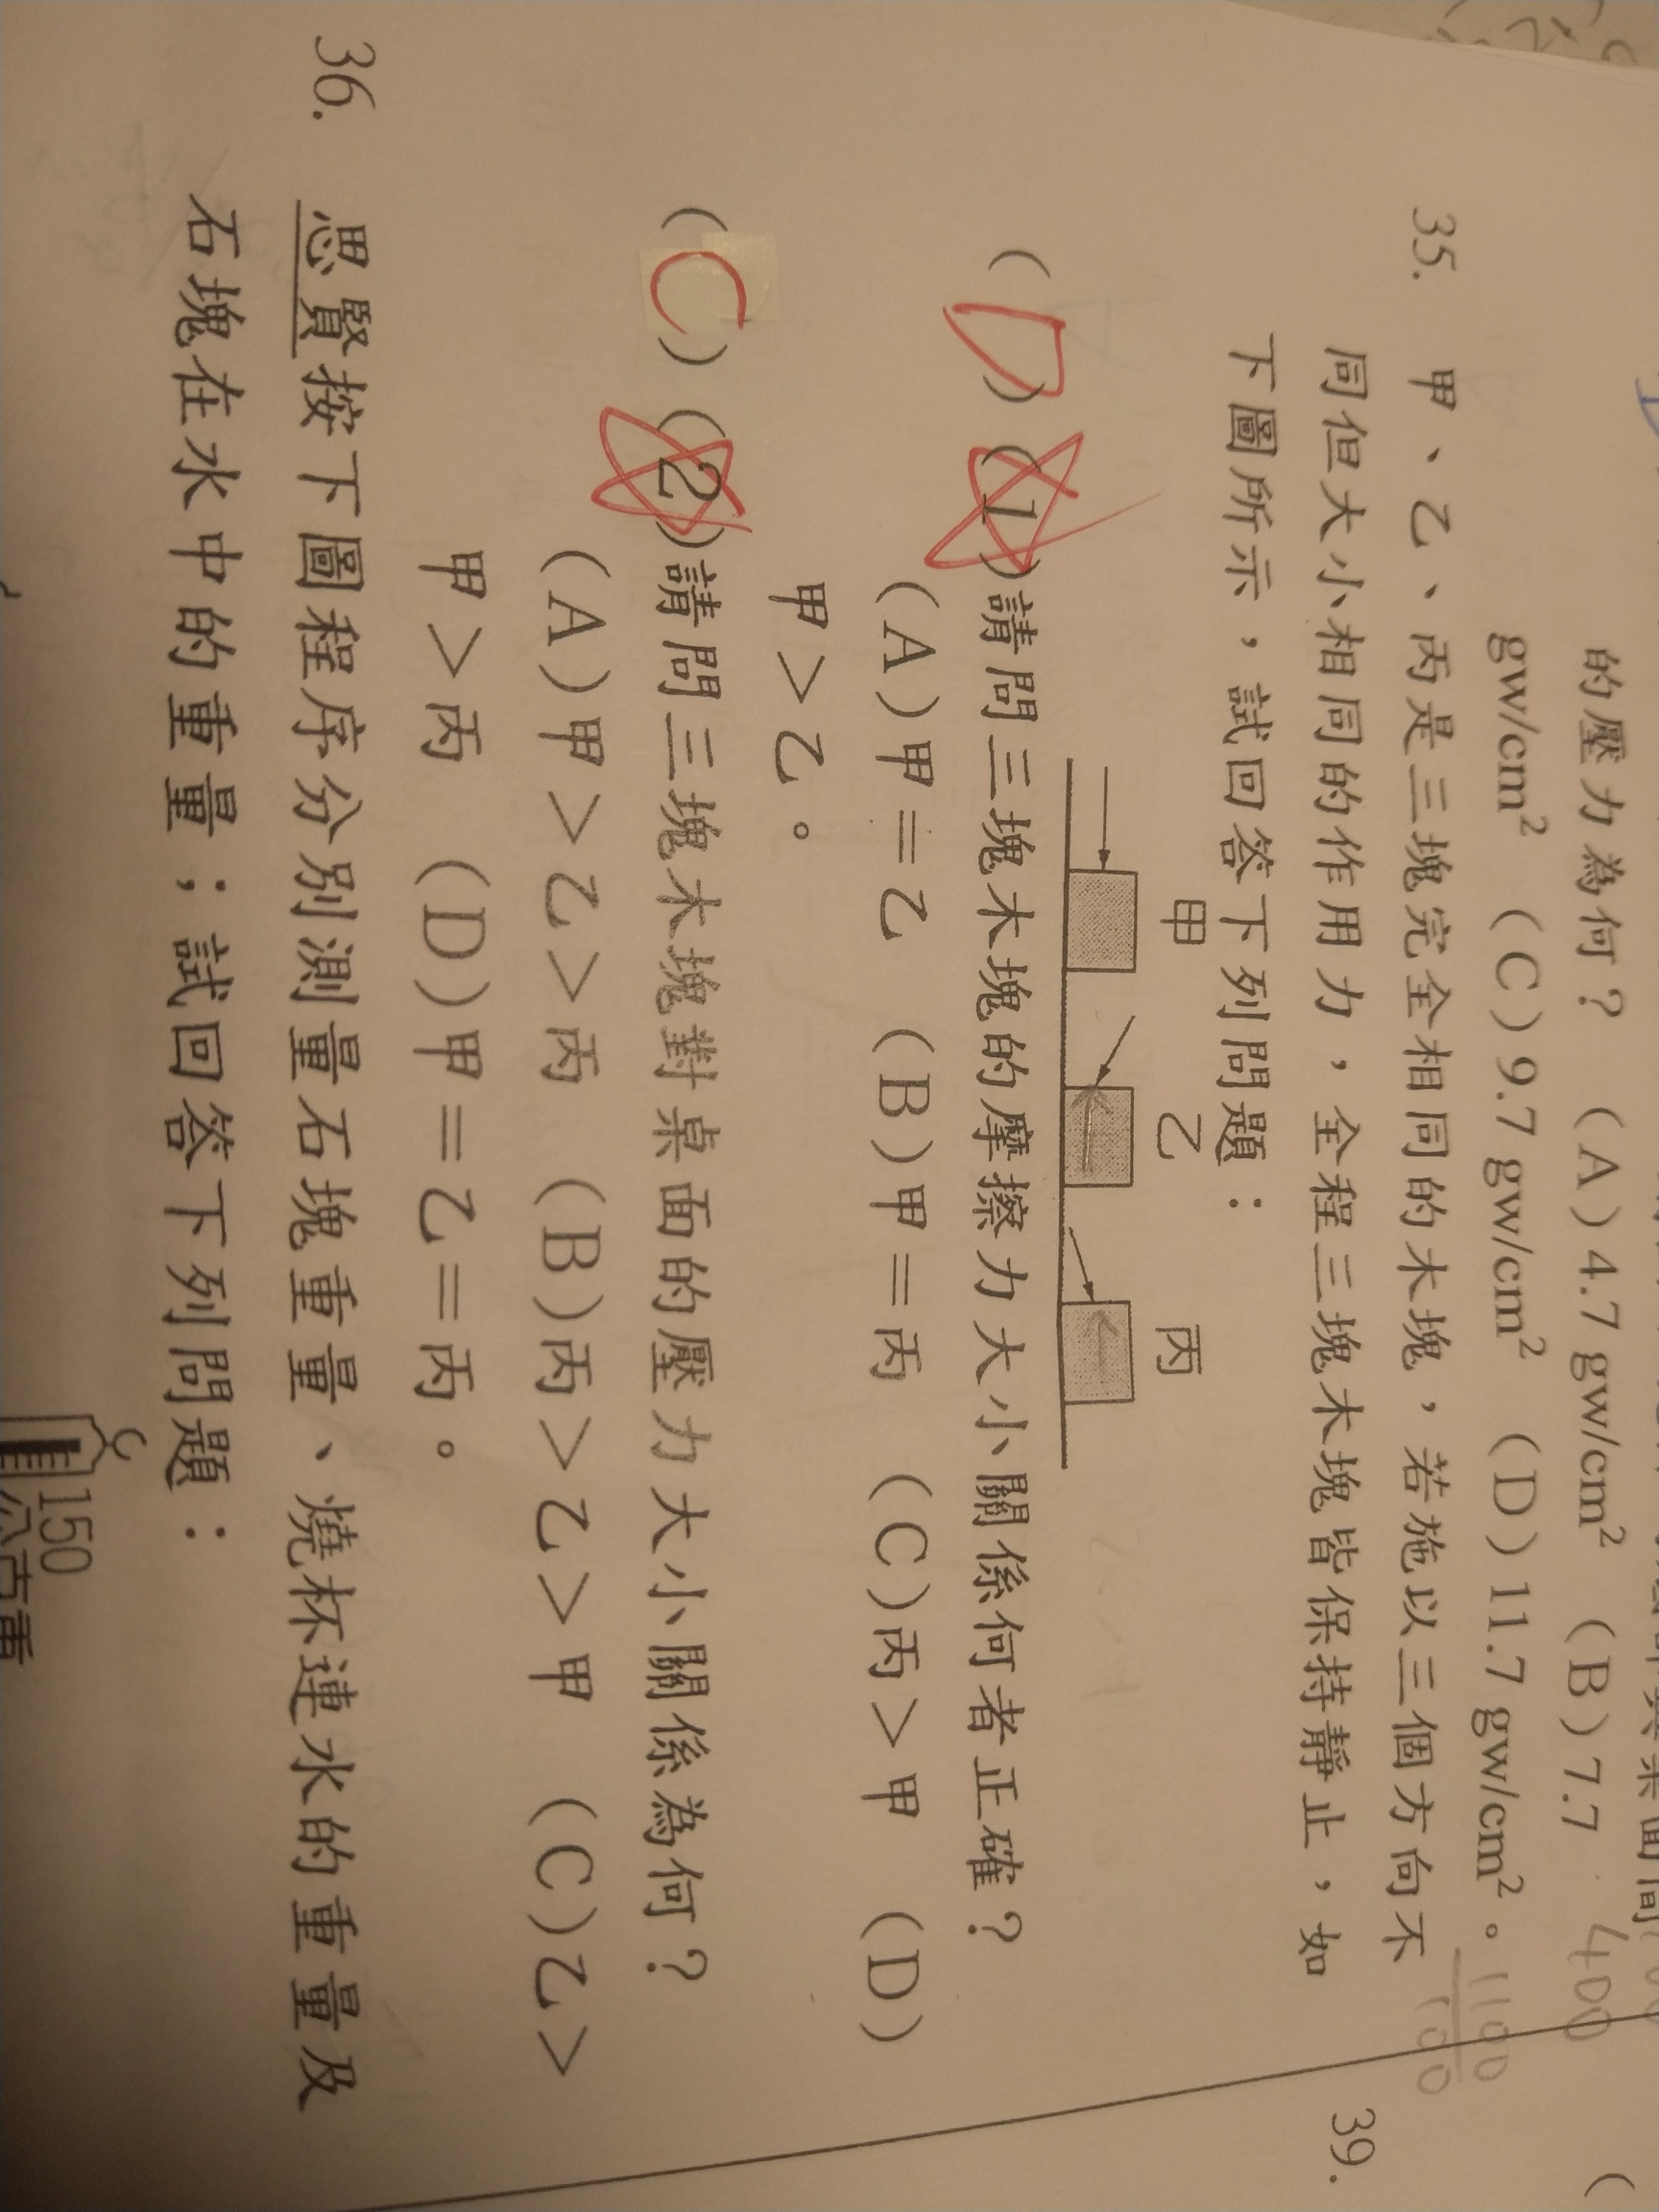 的壓力為何？ (A)4.7 gw/cm² (B)7.7
gw/cm² (C)9.7 gw/cm² (D)11.7 gw/cm²。
400
1100
100
35. 甲、乙、丙是三塊完全相同的木塊，若施以三個方向不
同但大小相同的作用力，全程三塊木塊皆保持靜止，如
下圖所示，試回答下列問題：
甲 乙 丙
(D)(1)請問三塊木塊的摩擦力大小關係何者正確？
(A)甲＝乙 (B)甲＝丙 (C)丙＞甲 (D)
甲＞乙。
(C)(2)請問三塊木塊對桌面的壓力大小關係為何？
(A)甲＞乙＞丙 (B)丙＞乙＞甲 (C)乙＞
甲＞丙 (D)甲＝乙＝丙。
36. 思賢按下圖程序分別測量石塊重量、燒杯連水的重量及
石塊在水中的重量；試回答下列問題：
150
公克重
39.
(